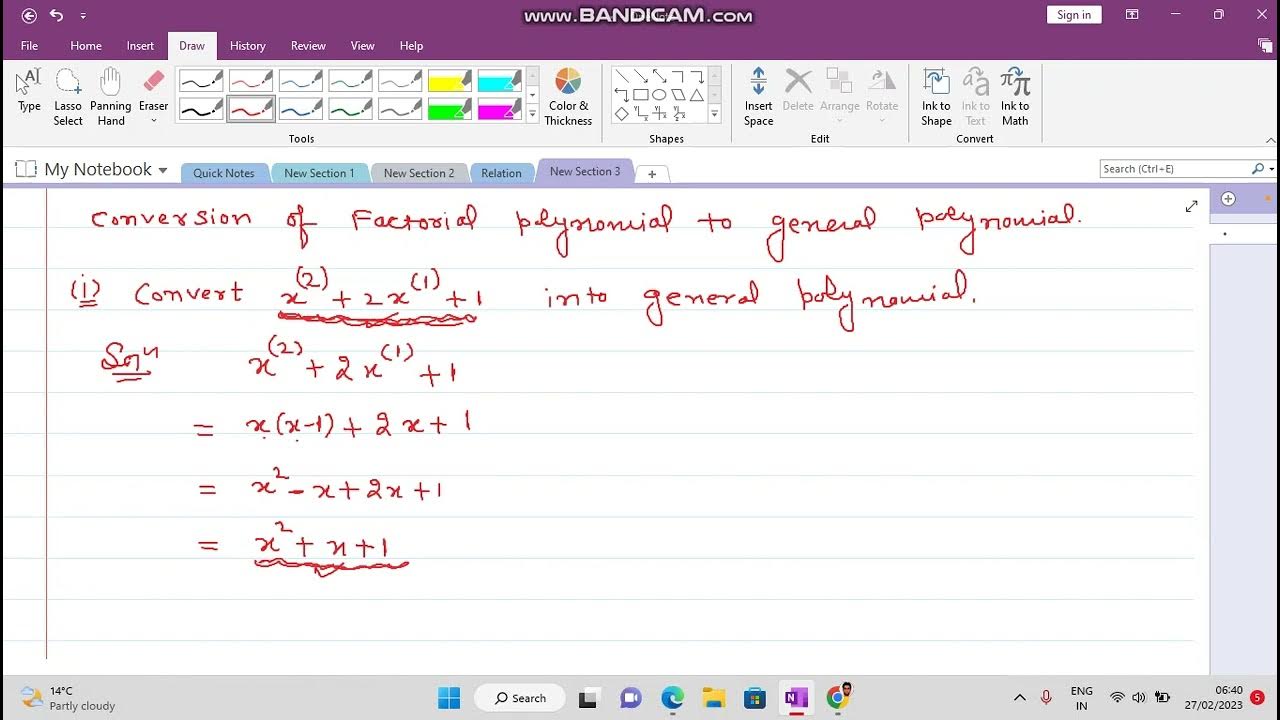 www.BANDICAM.com
Sign in
File Home Insert Draw History Review View Help
Type Lasso Select Panning Hand Eraser Color & Thickness Insert Space Delete Arrange Rotate Ink to Shape Ink to Text Ink to Math
Tools Shapes Edit Convert
My Notebook Quick Notes New Section 1 New Section 2 Relation New Section 3 + Search (Ctrl+E)
Conversion of Factorial polynomial to general polynomial.
(i) Convert x^(2) + 2x^(1) + 1 into general polynomial.
Solⁿ x^(2) + 2x^(1) + 1
= x(x-1) + 2x + 1
= x² - x + 2x + 1
= x² + x + 1
14°C
Partly cloudy
Search
ENG
IN
06:40
27/02/2023
5